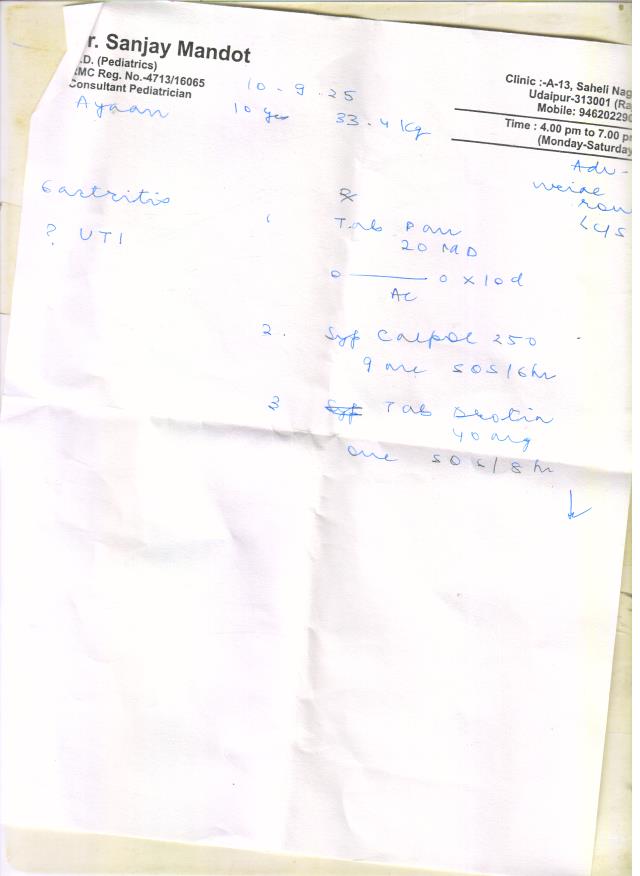 r. Sanjay Mandot
.D. (Pediatrics)
MC Reg. No.-4713/16065
Consultant Pediatrician
Clinic :-A-13, Saheli Nag
Udaipur-313001 (Ra
Mobile: 946202290
Time : 4.00 pm to 7.00 p
(Monday-Saturday
10-9-25
Ayaan 10 33.4 Kg
Adv-
Gastritis
? UTI
℞
1 Tab Pan
20
0 ——— 0 x 10d
AC
2. Syp Calpol 250
9 SOS/6hr
3 Syp Tab Drotin
40 mg
one SOS/8hr
↓